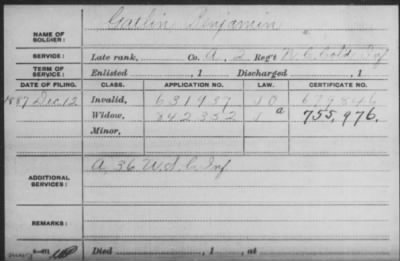 Gatlin Benjamin
NAME OF SOLDIER:
SERVICE: Late rank, Co. A, 2 Reg't N.C. Cold. Inf
TERM OF SERVICE: Enlisted , 1 Discharged , 1
DATE OF FILING. CLASS. APPLICATION NO. LAW. CERTIFICATE NO.
1887 Dec. 12 Invalid, 631937 677846
Widow, 842352 a 755,976.
Minor,
A, 36 U.S.C. Inf
ADDITIONAL SERVICES:
REMARKS:
Died , 1 , at